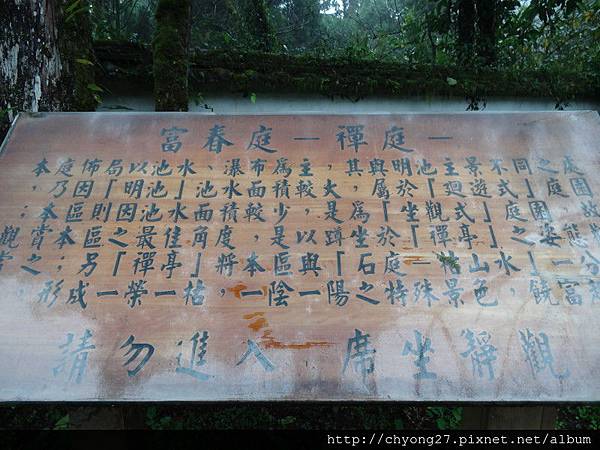 富春庭－禪庭－
本庭佈局以池水、瀑布為主，其與明池主景不同之處
，乃因「明池」池水面積較大，屬於「迴遊式」庭園
；本區則因池水面積較少，是為「坐觀式」庭園，故
觀賞本區之最佳角度，是以蹲坐於「禪亭」之姿態
之；另「禪亭」將本區與「石庭－枯山水」一分
，形成一榮一枯，一陰一陽之特殊景色，饒富
請勿進入 席坐靜觀
http://chyong27.pixnet.net/album